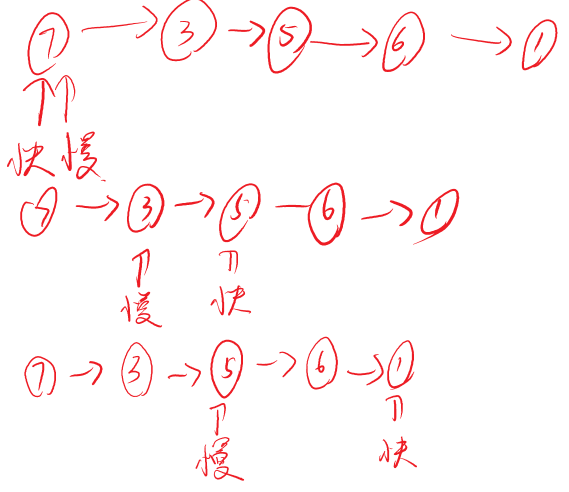 7 → 3 → 5 → 6 → 1
↑ ↑
快 慢
7 → 3 → 5 — 6 → 1
↑ ↑
慢 快
7 → 3 → 5 → 6 → 1
↑ ↑
慢 快